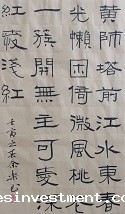 黃師塔前江水東春
光懶困倚微風桃花
一簇開無主可愛深
紅愛淺紅